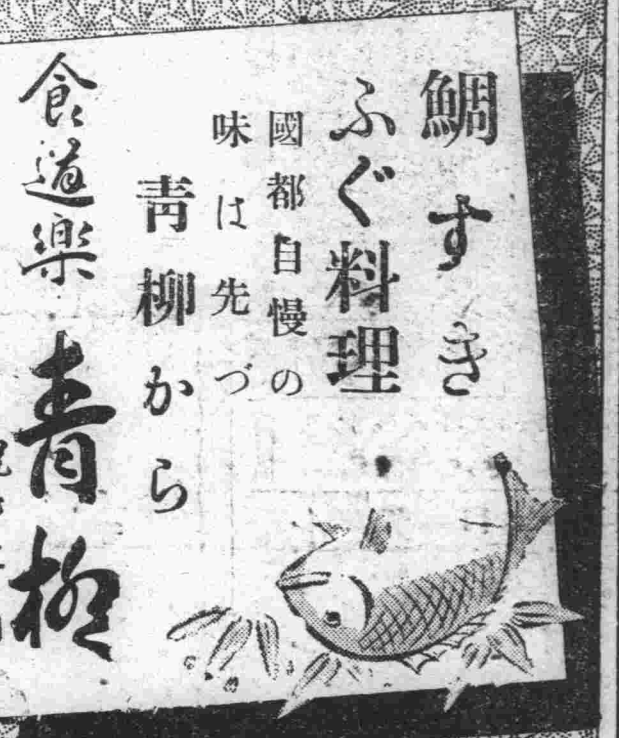 鯛すき
ふぐ料理
國都自慢の
味は先づ
靑柳から
食道楽
青柳